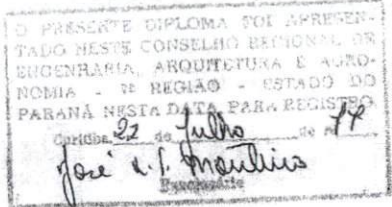 O PRESENTE DIPLOMA FOI APRESEN-
TADO NESTE CONSELHO REGIONAL DE
ENGENHARIA, ARQUITETURA E AGRO-
NOMIA - 7ª REGIÃO - ESTADO DO
PARANÁ NESTA DATA PARA REGISTRO
Curitiba 22 de Julho de 77
José